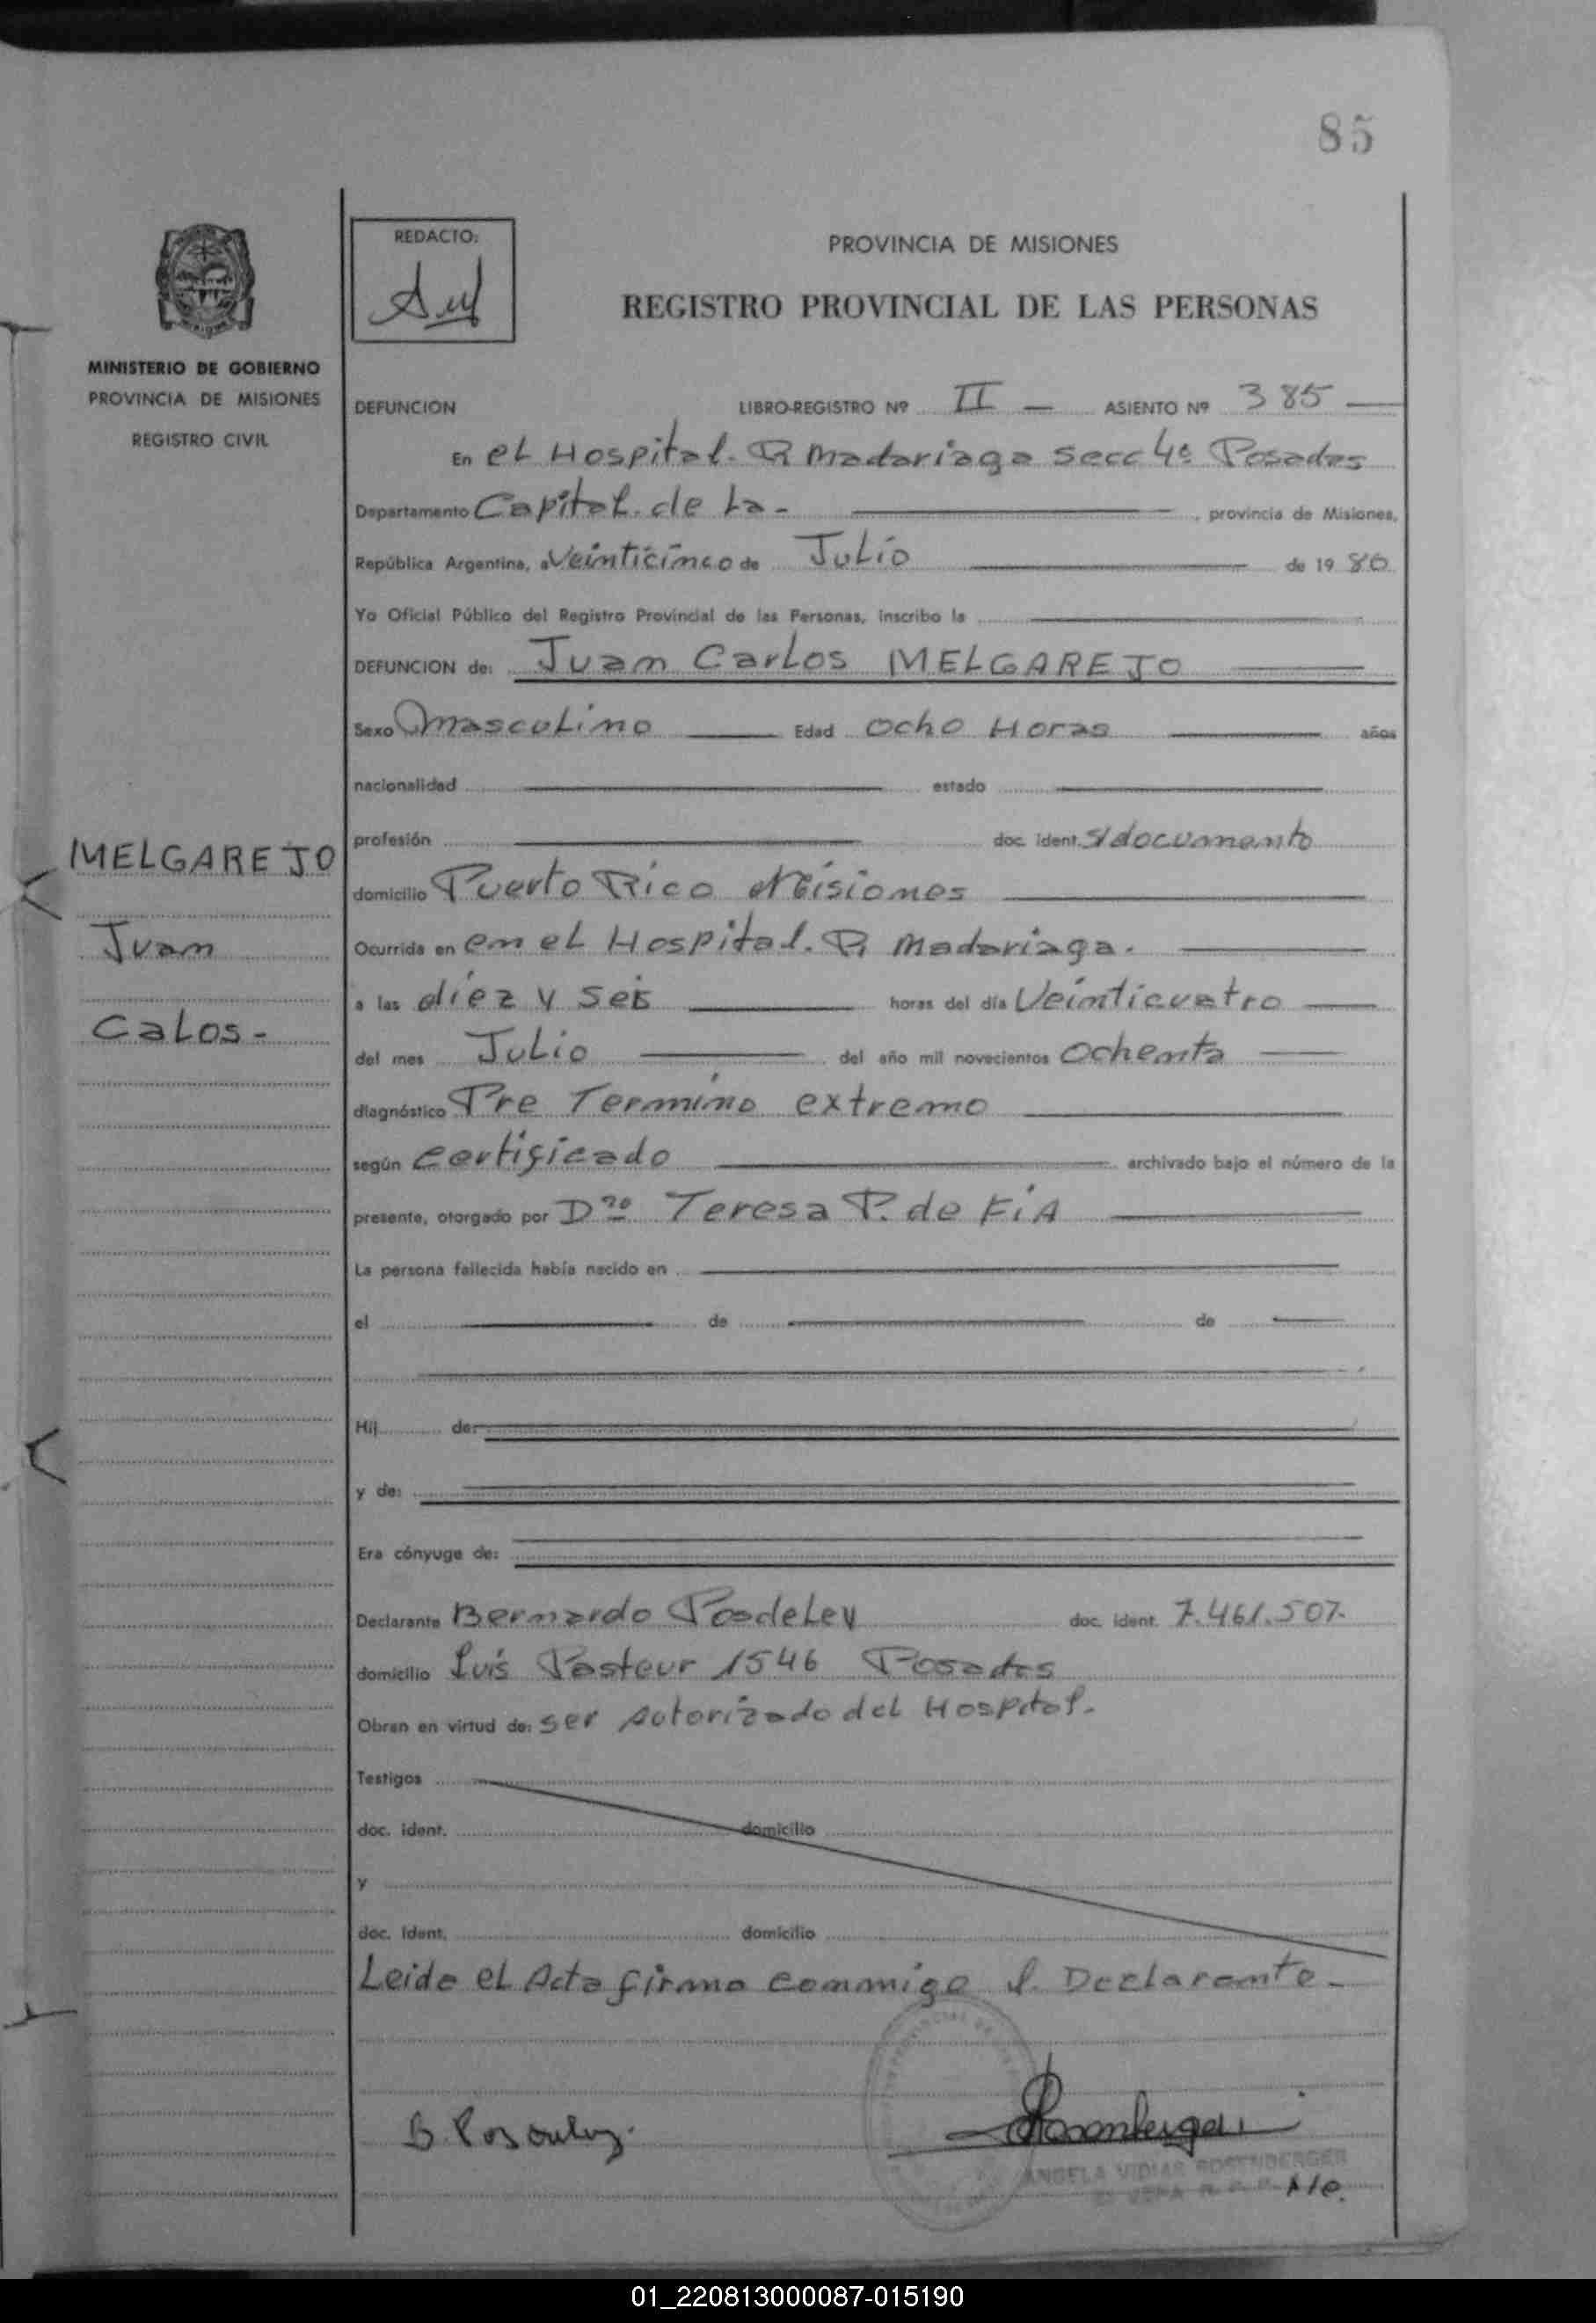 85
REDACTO:
PROVINCIA DE MISIONES
REGISTRO PROVINCIAL DE LAS PERSONAS
MINISTERIO DE GOBIERNO
PROVINCIA DE MISIONES
REGISTRO CIVIL
DEFUNCION LIBRO-REGISTRO Nº II — ASIENTO Nº 385 —
En el Hospital R Madariaga Secc 4º Posadas
Departamento Capital de la - , provincia de Misiones,
República Argentina, a Veinticinco de Julio de 19 80
Yo Oficial Público del Registro Provincial de las Personas, inscribo la
DEFUNCION de: Juan Carlos MELGAREJO
Sexo masculino Edad ocho Horas años
nacionalidad estado
profesión doc. ident. s/documento
MELGAREJO
Juan
Calos-
domicilio Puerto Rico Misiones
Ocurrida en en el Hospital. R Madariaga.
a las diez y seis horas del día Veinticuatro
del mes Julio del año mil novecientos Ochenta
diagnóstico Pre Termino extremo
según certificado archivado bajo el número de la
presente, otorgado por Dra Teresa P. de FiA
La persona fallecida había nacido en
el de de
Hij de:
y de:
Era cónyuge de:
Declarante Bernardo doc. ident. 7.461.507.
domicilio Luis Pasteur 1546 Posadas
Obran en virtud de: ser Autorizado del Hospital.
Testigos
doc. ident. domicilio
y
doc. ident. domicilio
Leida el Acta firma conmigo el Declarante-
ANGELA VIDIAS ROSENBERGER
01_220813000087-015190